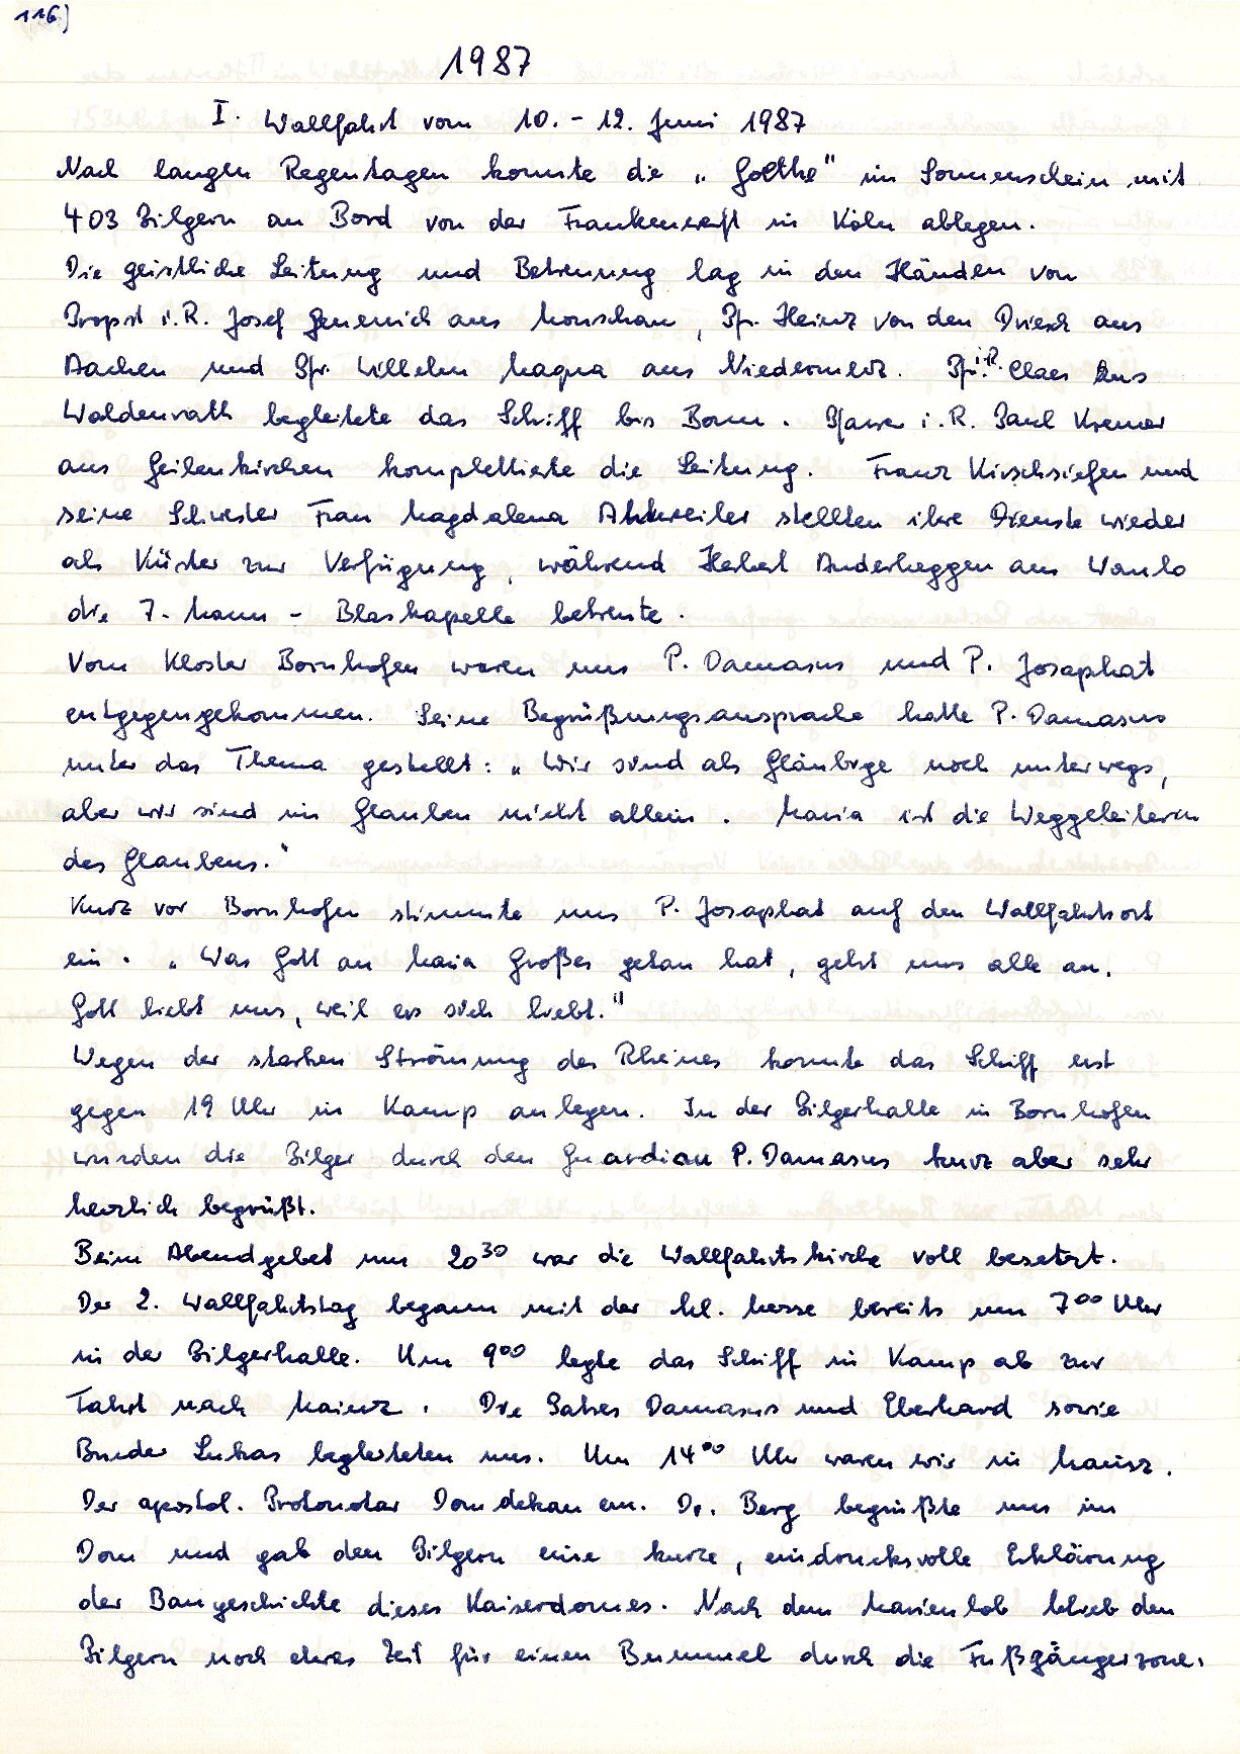 116)
1987
I. Wallfahrt vom 10. - 12. Juni 1987
Nach langen Regentagen konnte die „Goethe" im Sonnenschein mit
403 Pilgern an Bord von der Frankenwerft in Köln ablegen.
Die geistliche Leitung und Betreuung lag in den Händen von
Propst i.R. Josef Jenenich aus Monschau, Pfr. Heinz von den Driesch aus
Aachen und Pfr. Wilhelm Maqua aus Niedermerz. Pfr. i.R. Claes aus
Waldenrath begleitete das Schiff bis Bonn. Pfarrer i.R. Paul Kremer
aus Geilenkirchen komplettierte die Leitung. Franz Kirschsiefen und
seine Schwester Frau Magdalena Ahrweiler stellten ihre Dienste wieder
als Küster zur Verfügung, während Herbert Anderheggen aus Wanlo
die 7-Mann-Blaskapelle betreute.
Vom Kloster Bornhofen waren uns P. Damasus und P. Josaphat
entgegengekommen. Seine Begrüßungsansprache hatte P. Damasus
unter das Thema gestellt: „Wir sind als Gläubige noch unterwegs,
aber wir sind im Glauben nicht allein. Maria ist die Weggeleiterin
des Glaubens."
Kurz vor Bornhofen stimmte uns P. Josaphat auf den Wallfahrtsort
ein. „Was Gott an Maria Großes getan hat, geht uns alle an.
Gott liebt uns, weil er sich liebt."
Wegen der starken Strömung des Rheines konnte das Schiff erst
gegen 19 Uhr in Kamp anlegen. In der Pilgerhalle in Bornhofen
wurden die Pilger durch den Guardian P. Damasus kurz aber sehr
herzlich begrüßt.
Beim Abendgebet um 20³⁰ war die Wallfahrtskirche voll besetzt.
Der 2. Wallfahrtstag begann mit der hl. Messe bereits um 7⁰⁰ Uhr
in der Pilgerhalle. Um 9⁰⁰ legte das Schiff in Kamp ab zur
Fahrt nach Mainz. Die Patres Damasus und Eberhard sowie
Bruder Lukas begleiteten uns. Um 14⁰⁰ Uhr waren wir in Mainz.
Der apostol. Protonotar Domdekan em. Dr. Berg begrüßte uns im
Dom und gab den Pilgern eine kurze, eindrucksvolle Erklärung
der Baugeschichte dieses Kaiserdomes. Nach dem Marienlob blieb den
Pilgern noch etwas Zeit für einen Bummel durch die Fußgängerzone.